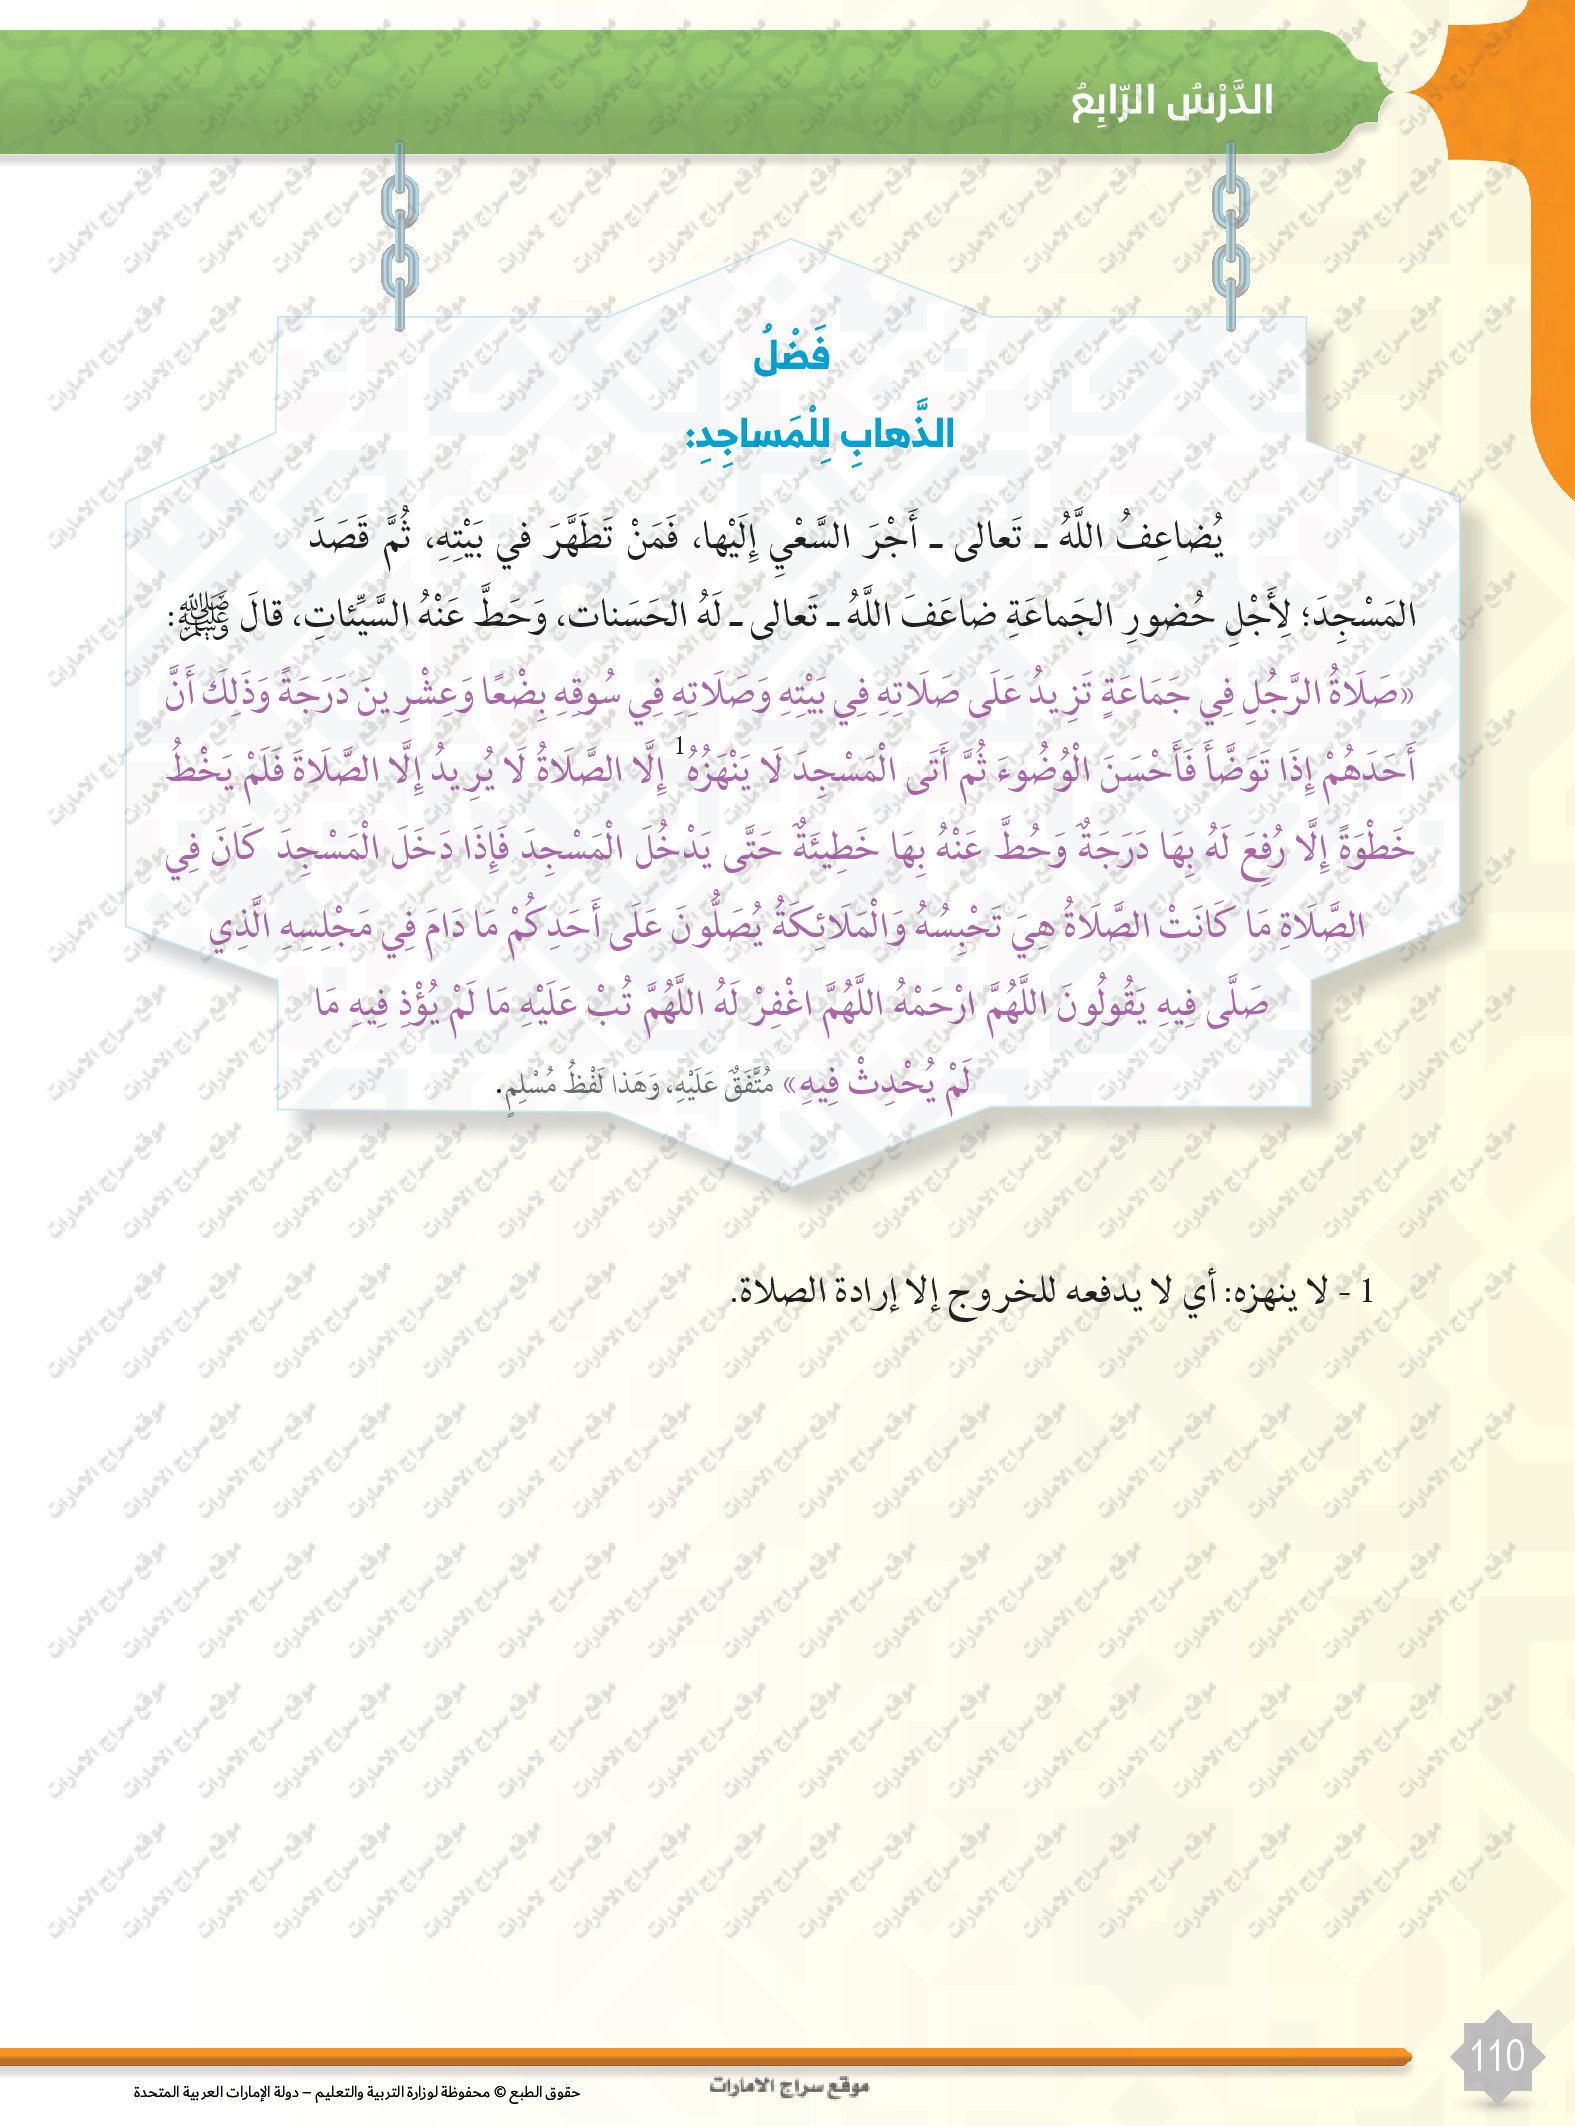 الدَّرْسُ الرّابِعُ
فَضْلُ
الذَّهابِ لِلْمَساجِدِ:
يُضاعِفُ اللَّهُ ـ تَعالى ـ أَجْرَ السَّعْيِ إِلَيْها، فَمَنْ تَطَهَّرَ في بَيْتِهِ، ثُمَّ قَصَدَ
المَسْجِدَ؛ لِأَجْلِ حُضورِ الجَماعَةِ ضاعَفَ اللَّهُ ـ تَعالى ـ لَهُ الحَسَنات، وَحَطَّ عَنْهُ السَّيِّئاتِ، قالَ ﷺ:
«صَلَاةُ الرَّجُلِ فِي جَمَاعَةٍ تَزِيدُ عَلَى صَلَاتِهِ فِي بَيْتِهِ وَصَلَاتِهِ فِي سُوقِهِ بِضْعًا وَعِشْرِينَ دَرَجَةً وَذَلِكَ أَنَّ
أَحَدَهُمْ إِذَا تَوَضَّأَ فَأَحْسَنَ الْوُضُوءَ ثُمَّ أَتَى الْمَسْجِدَ لَا يَنْهَزُهُ1 إِلَّا الصَّلَاةُ لَا يُرِيدُ إِلَّا الصَّلَاةَ فَلَمْ يَخْطُ
خَطْوَةً إِلَّا رُفِعَ لَهُ بِهَا دَرَجَةٌ وَحُطَّ عَنْهُ بِهَا خَطِيئَةٌ حَتَّى يَدْخُلَ الْمَسْجِدَ فَإِذَا دَخَلَ الْمَسْجِدَ كَانَ فِي
الصَّلَاةِ مَا كَانَتْ الصَّلَاةُ هِيَ تَحْبِسُهُ وَالْمَلَائِكَةُ يُصَلُّونَ عَلَى أَحَدِكُمْ مَا دَامَ فِي مَجْلِسِهِ الَّذِي
صَلَّى فِيهِ يَقُولُونَ اللَّهُمَّ ارْحَمْهُ اللَّهُمَّ اغْفِرْ لَهُ اللَّهُمَّ تُبْ عَلَيْهِ مَا لَمْ يُؤْذِ فِيهِ مَا
لَمْ يُحْدِثْ فِيهِ» مُتَّفَقٌ عَلَيْهِ، وَهَذا لَفْظُ مُسْلِمٍ.
1 - لا ينهزه: أي لا يدفعه للخروج إلا إرادة الصلاة.
110
موقع سراج الامارات
حقوق الطبع © محفوظة لوزارة التربية والتعليم – دولة الإمارات العربية المتحدة